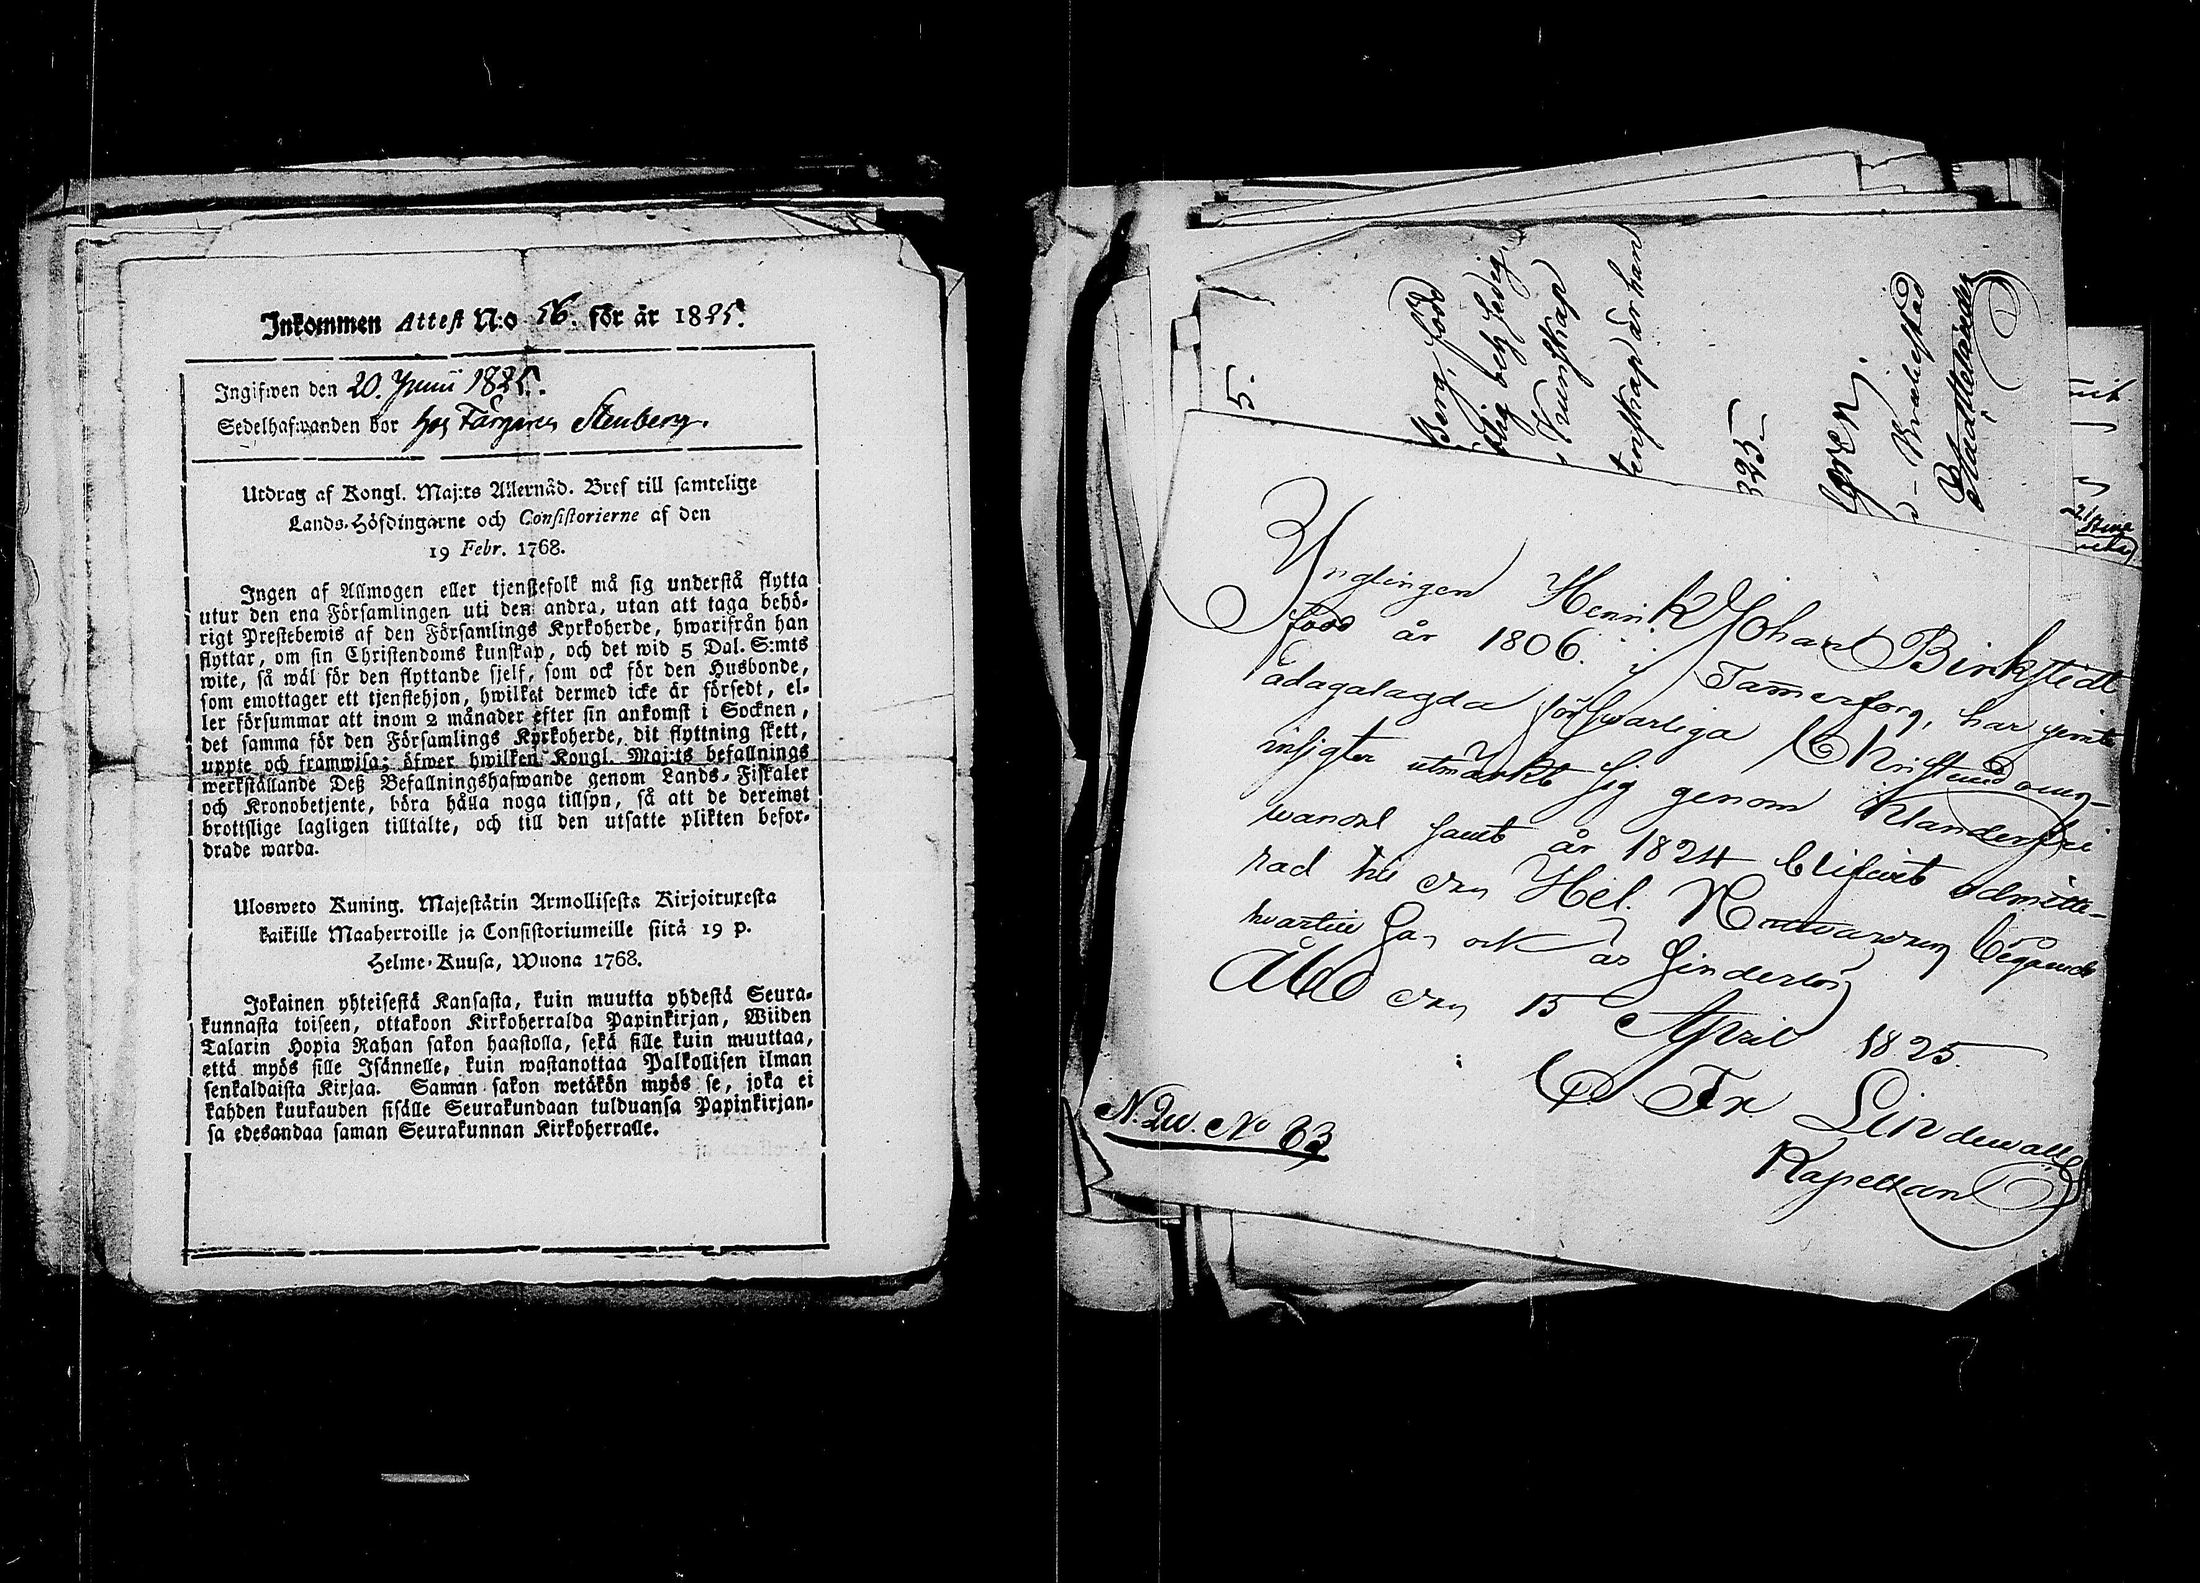 Inkommen Attest N:o 56. för år 1825.
Ingifwen den 20. Junii 1825.
Sedelhafwanden bor hos Färgaren Stenberg.
Utdrag af Kongl. Maj:ts Allernåd. Bref till samtelige
Lands-Höfdingarne och Consistorierne af den
19 Febr. 1768.
Ingen af Allmogen eller tjenstefolk må sig understå flytta
utur den ena Församlingen uti den andra, utan att taga behö-
rigt Prestebewis af den Församlings Kyrkoherde, hwarifrån han
flyttar, om sin Christendoms kunskap, och det wid 5 Dal. S:mts
wite, så wäl för den flyttande sjelf, som ock för den Husbonde,
som emottager ett tjenstehjon, hwilket dermed icke är försedt, el-
ler försummar att inom 2 månader efter sin ankomst i Socknen,
det samma för den Församlings Kyrkoherde, dit flyttning skett,
uppte och framwisa; öfwer hwilken Kongl. Maj:ts befallnings
werkställande Deß Befallningshafwande genom Lands-Fiskaler
och Kronobetjente, böra hålla noga tillsyn, så att de deremot
brottslige lagligen tilltalte, och till den utsatte plikten befor-
drade warda.
Ulosweto Kuning. Majestätin Armollisesta Kirjoituxesta
kaikille Maaherroille ja Consistoriumeille siitä 19 p.
Helme-Kuusa, Wuona 1768.
Jokainen yhteisestä Kansasta, kuin muutta yhdestä Seura-
kunnasta toiseen, ottakoon Kirkoherralda Papinkirjan, Wiiden
Talarin Hopia Rahan sakon haastolla, sekä sille kuin muuttaa,
että myös sille Isännelle, kuin wastanottaa Palkollisen ilman
senkaldaista Kirjaa. Saman sakon wetäkön myös se, joka ei
kahden kuukauden sisälle Seurakundaan tulduansa Papinkirjan-
sa edesandaa saman Seurakunnan Kirkoherralle.
5.
Berg, född
Kunskap
är han
325
gren
Brahestad
Ynglingen Henrik Johan Binkstedt
född år 1806. i Tammerfors, har jemte
ådagalagda försvarliga Christendoms-
insigter utmärkt sig genom klanderfri
wandel samt år 1824 blifvit admitte-
rad till den Hel. Nattvarden begående
hvartill han ock är hinderlös
Åbo den 15 April 1825.
Fr Lindewall
Kapellan
N. Qw. No 63